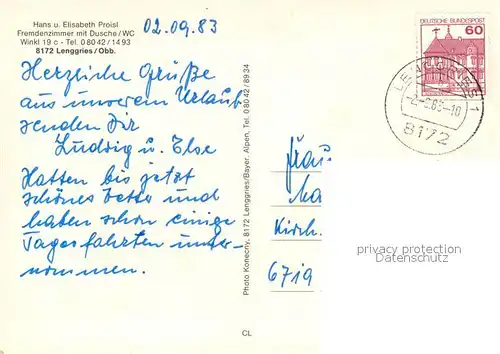 Hans u. Elisabeth Proisl
Fremdenzimmer mit Dusche/WC
Winkl 19 c - Tel. 08042/1493
8172 Lenggries/Obb.
02.09.83
Herzliche Grüße
aus unserem Urlaub
senden Dir
Ludwig u. Else
Hatten bis jetzt
schönes Wetter und
haben schon einige
Tagesfahrten unter-
nommen.
Photo Konecny, 8172 Lenggries/Bayer. Alpen, Tel. 08042/8934
CL
DEUTSCHE BUNDESPOST
60
LENGGRIES 1
8172
Frau
Kirch.
6719
privacy protection
Datenschutz